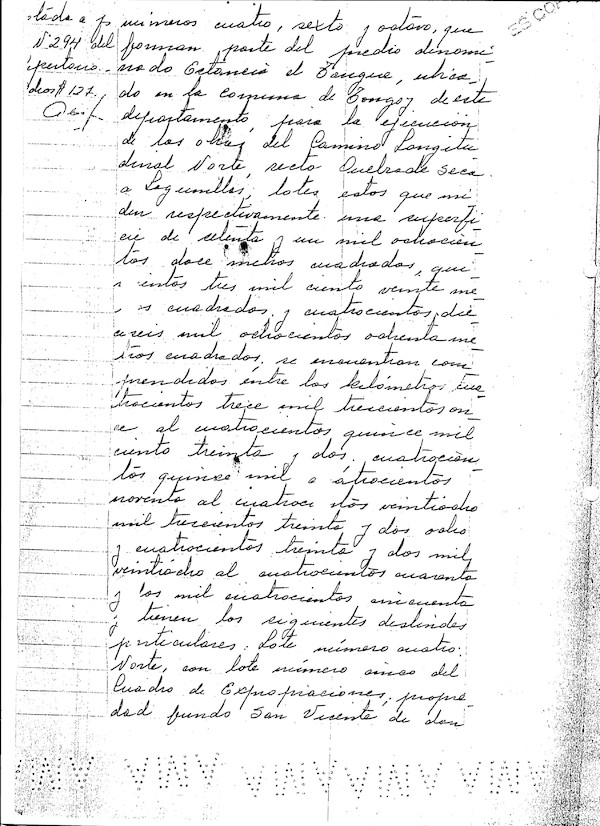 Nº 294 del
números cuatro, sexto y octavo, que
forman parte del predio denomi-
nado Estancia el Tangue, ubica-
do en la comuna de Tongoy de este
departamento, para la ejecución
de las obras del Camino Longitu-
dinal Norte, sector Quebrada Seca
a Lagunillas, lotes estos que mi-
den respectivamente una superfi-
cie de setenta y un mil ochocien-
tos doce metros cuadrados, qui-
ientos tres mil ciento veinte me-
os cuadrados y cuatrocientos die-
ciseis mil ochocientos ochenta me-
tros cuadrados, se encuentran com-
prendidos entre los kilómetros cua-
trocientos trece mil trescientos on-
ce al cuatrocientos quince mil
ciento treinta y dos, cuatrocien-
tos quince mil atrocientos
noventa al cuatroci ntos veintiocho
mil trescientos treinta y dos ocho
y cuatrocientos treinta y dos mil
veintiocho al cuatrocientos cuarenta
y os mil cuatrocientos cincuenta
y tienen los siguientes deslindes
particulares: Lote número cuatro:
Norte, con lote número cinco del
Cuadro de Expropiaciones, propie-
dad fundo San Vicente de don
ES COP